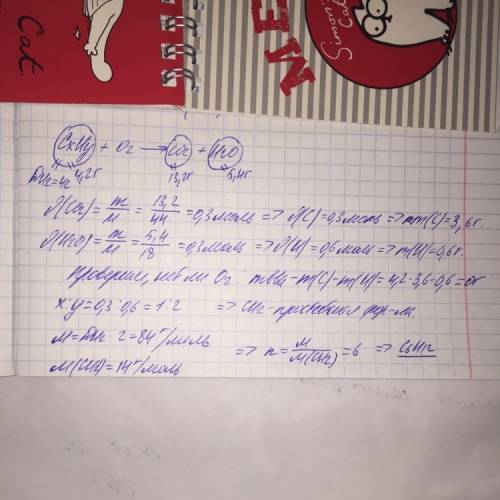 Cat.
ME
Simon's Cat
CxHy + O2 → CO2 + H2O
4,2г 13,2г 5,4г
DH2=42
ν(CO2) = m/M = 13,2/44 = 0,3 моль => ν(C) = 0,3 моль => m(C) = 3,6г.
ν(H2O) = m/M = 5,4/18 = 0,3 моль => ν(H) = 0,6 моль => m(H) = 0,6г.
Проверим, нет ли O2: mв-ва - m(C) - m(H) = 4,2-3,6-0,6 = 0г
x:y = 0,3:0,6 = 1:2 => CH2 - простейшая фор-ла.
M = DH2 · 2 = 84 г/моль => n = M/M(CH2) = 6 => C6H12
M(CH2) = 14 г/моль